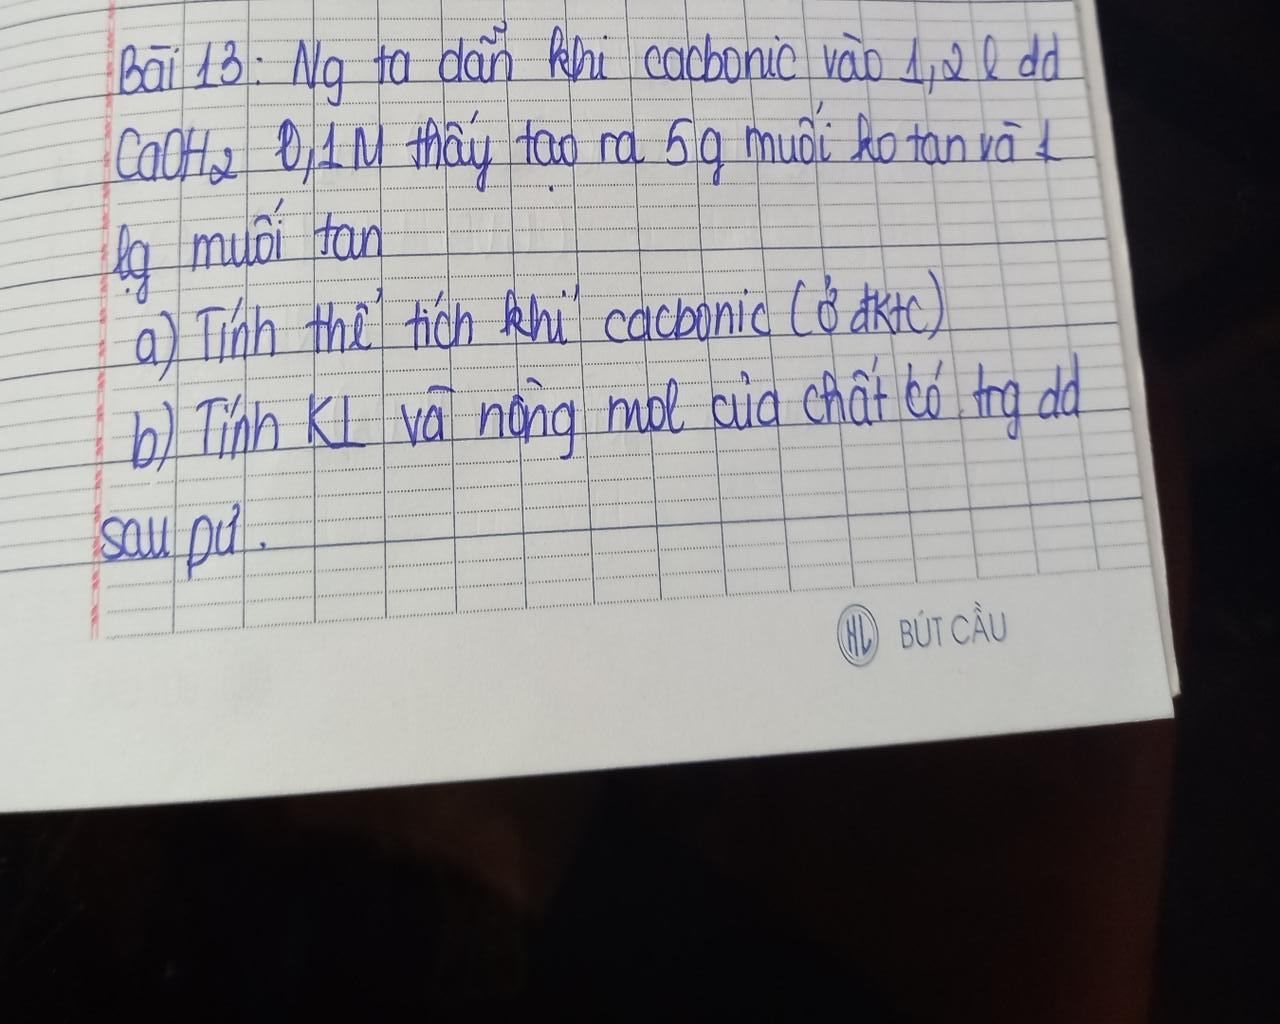 Bài 13: Ng ta dẫn khí cacbonic vào 1,2 l dd
CaOH2 0,1M thấy tạo ra 5g muối ko tan và 1
lg muối tan
a) Tính thể tích khí cacbonic (ở đktc)
b) Tính KL và nồng mol của chất có trg dd
sau pư.
HL BÚT CẦU